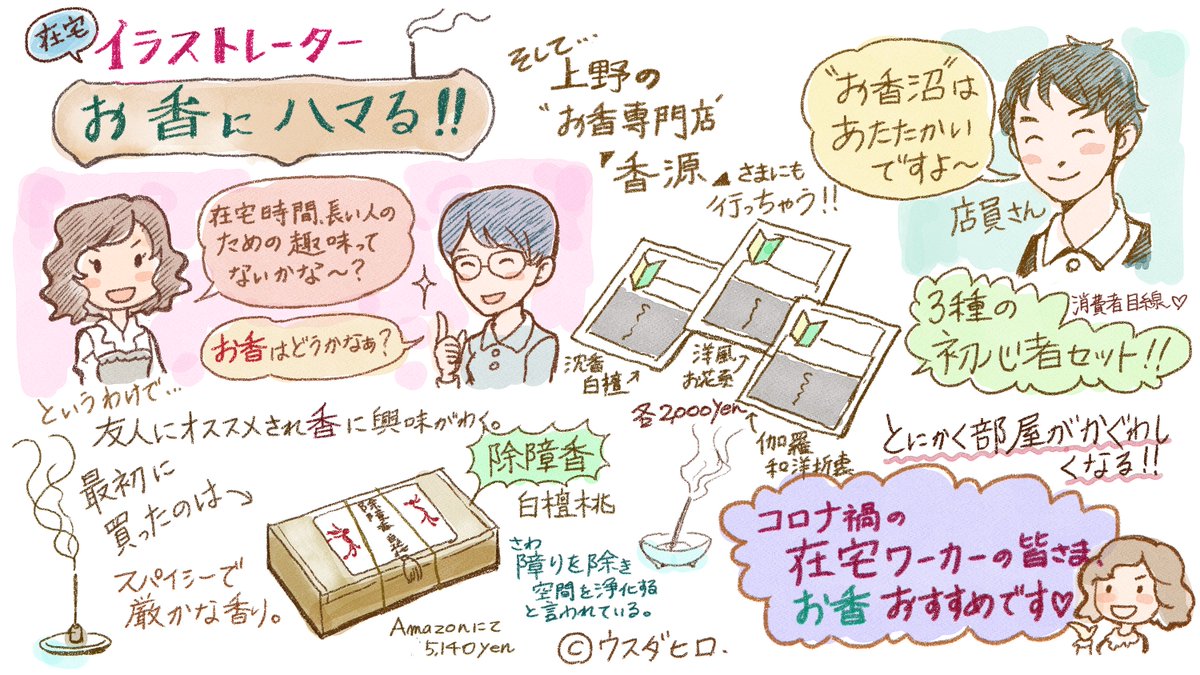 在宅
イラストレーター
お香にハマる!!
在宅時間、長い人の
ための趣味って
ないかな〜?
お香はどうかなぁ?
というわけで…
友人にオススメされ香に興味がわく。
最初に
買ったのは
スパイシーで
厳かな香り。
除障香
白檀桃
さわ
障りを除き
空間を浄化する
と言われている。
Amazonにて
5,140yen
そして…
上野の
"お香専門店"
香源
さまにも
行っちゃう!!
"お香沼"は
あたたかい
ですよ〜
店員さん
3種の
消費者目線♡
初心者セット!!
沈香
白檀
洋風
お花系
各2,000yen
伽羅
和洋折衷
とにかく部屋がかぐわし
くなる!!
コロナ禍の
在宅ワーカーの皆さま、
お香おすすめです♡
©ウスダヒロ.